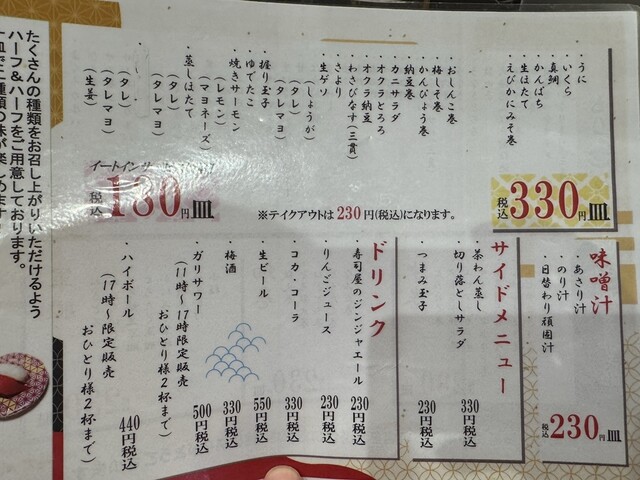 ・うに
・いくら
・真鯛
・かんぱち
・生ほたて
・えびかにみそ巻
税込330円皿
・おしんこ巻
・梅しそ巻
・かんぴょう巻
・納豆巻
・カニサラダ
・オクラとろろ
・オクラ納豆
・わさびなす(三貫)
・さより
・生ゲソ
(しょうが)
(タレ)
(タレマヨ)
・握り玉子
・ゆでたこ
・焼きサーモン
(レモン)
(マヨネーズ)
・蒸しほたて
(タレ)
(タレマヨ)
(タレ)
(タレマヨ)
(生姜)
イートイン
税込180円皿
※テイクアウトは230円(税込)になります。
たくさんの種類をお召し上がりいただけるよう
ハーフ&ハーフをご用意しております。
一皿で二種類の味が楽しめます
味噌汁
・あさり汁
・のり汁
・日替わり頑固汁
税込230円皿
サイドメニュー
・茶わん蒸し
・切り落としサラダ 330円税込
・つまみ玉子 230円税込
ドリンク
・寿司屋のジンジャエール 230円税込
・りんごジュース 230円税込
・コカ・コーラ 330円税込
・生ビール 550円税込
・梅酒 330円税込
・ガリサワー 500円税込
(11時〜17時限定販売
おひとり様2杯まで)
・ハイボール 440円税込
(17時〜限定販売
おひとり様2杯まで)